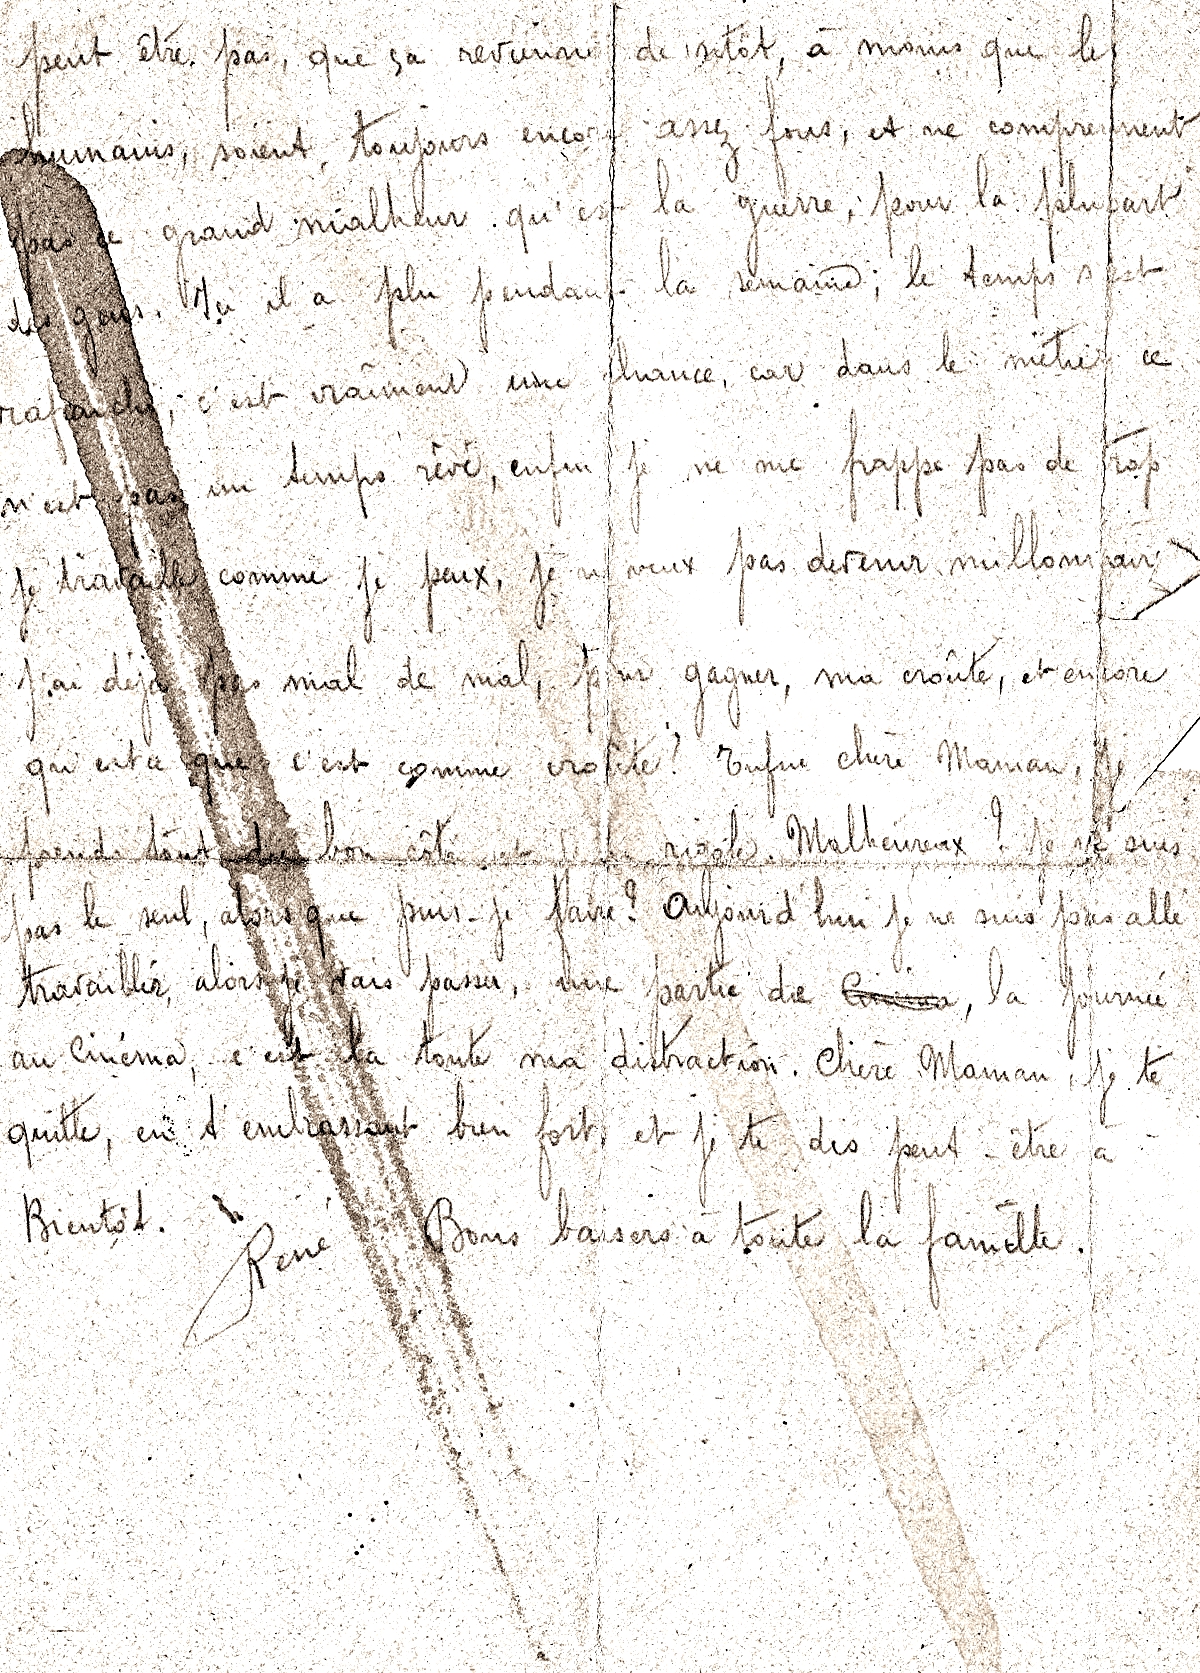 peut être pas, que ça revienne de sitôt, à moins que les
humains, soient, toujours encore assez fous, et ne comprennent
pas ce grand malheur qu'est la guerre, pour la plupart
des gens. Ici il a plu pendant la semaine; le temps s'est
rafraichi; c'est vraîment une chance, car dans le métier ce
n'est pas un temps rêvé, enfin je ne me frappe pas de trop
je travaille comme je peux, je ne veux pas devenir millonnair
j'ai déjà pas mal de mal, pour gagner, ma croûte, et encore
qu'est ce que c'est comme croûte? Enfin chère Maman, je
prends tout du bon côté et je rigole. Malheureux? je ne suis
pas le seul, alors que puis-je faire? Aujourd'hui je ne suis pas allé
travailler, alors je vais passer, une partie de Cinéma, la journée
au Cinéma, c'est là toute ma distraction. Chère Maman, je te
quitte, en t'embrassant bien fort, et je te dis peut-être à
Bientôt.
René Bons baisers à toute la famille.